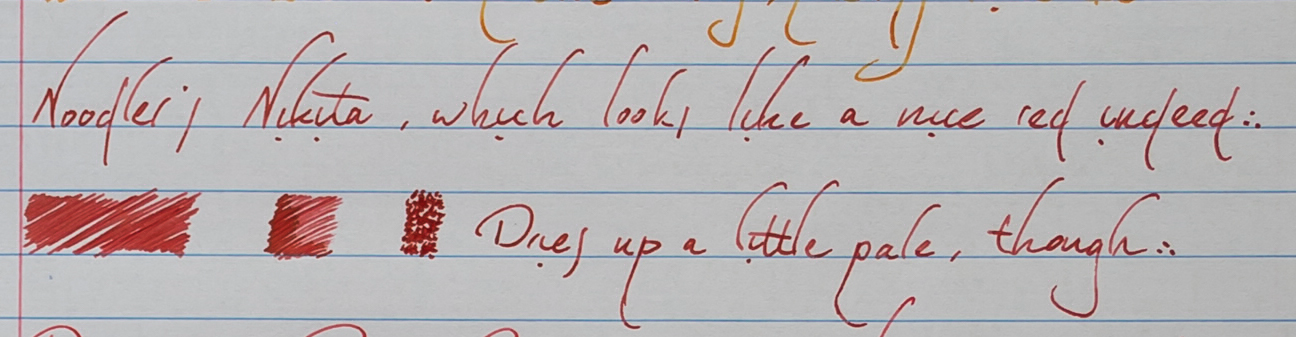 Noodler's Nikita, which looks like a nice red indeed∴
Dries up a little pale, though∴